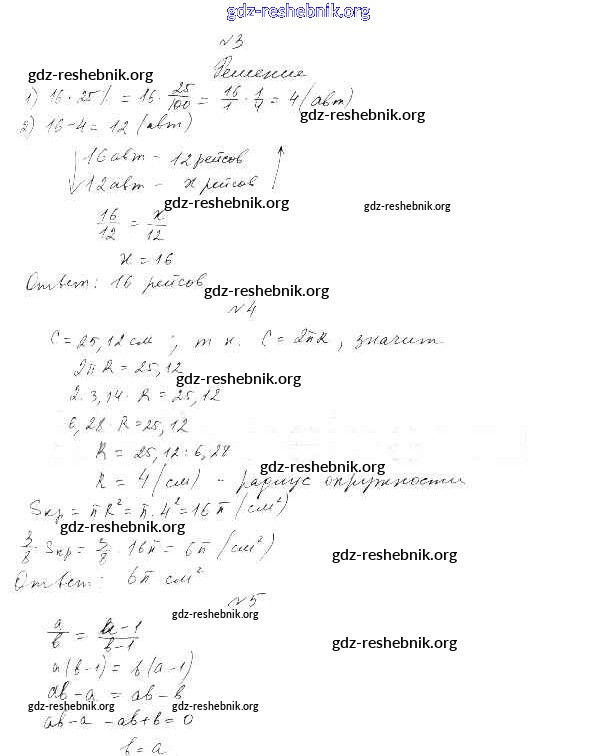 gdz-reshebnik.org
№3
Решение
gdz-reshebnik.org
1) 16 · 25% = 16 · 25/100 = 16/1 · 1/4 = 4 (авт)
gdz-reshebnik.org
2) 16-4 = 12 (авт)
16 авт - 12 рейсов
12 авт - x рейсов
gdz-reshebnik.org
gdz-reshebnik.org
16/12 = x/12
x = 16
Ответ: 16 рейсов
gdz-reshebnik.org
№4
C = 25,12 см ; т к. C = 2πR, значит
2πR = 25,12
gdz-reshebnik.org
2 · 3,14 · R = 25,12
6,28 · R = 25,12
R = 25,12 : 6,28
gdz-reshebnik.org
R = 4 (см) - радиус окружности
Sкр = πR² = π · 4² = 16π (см²)
gdz-reshebnik.org
3/8 · Sкр = 3/8 · 16π = 6π (см²)
gdz-reshebnik.org
Ответ: 6π см²
№5
gdz-reshebnik.org
a/b = a-1/b-1
gdz-reshebnik.org
a(b-1) = b(a-1)
ab-a = ab-b
gdz-reshebnik.org gdz-reshebnik.org
ab-a -ab+b = 0
b = a